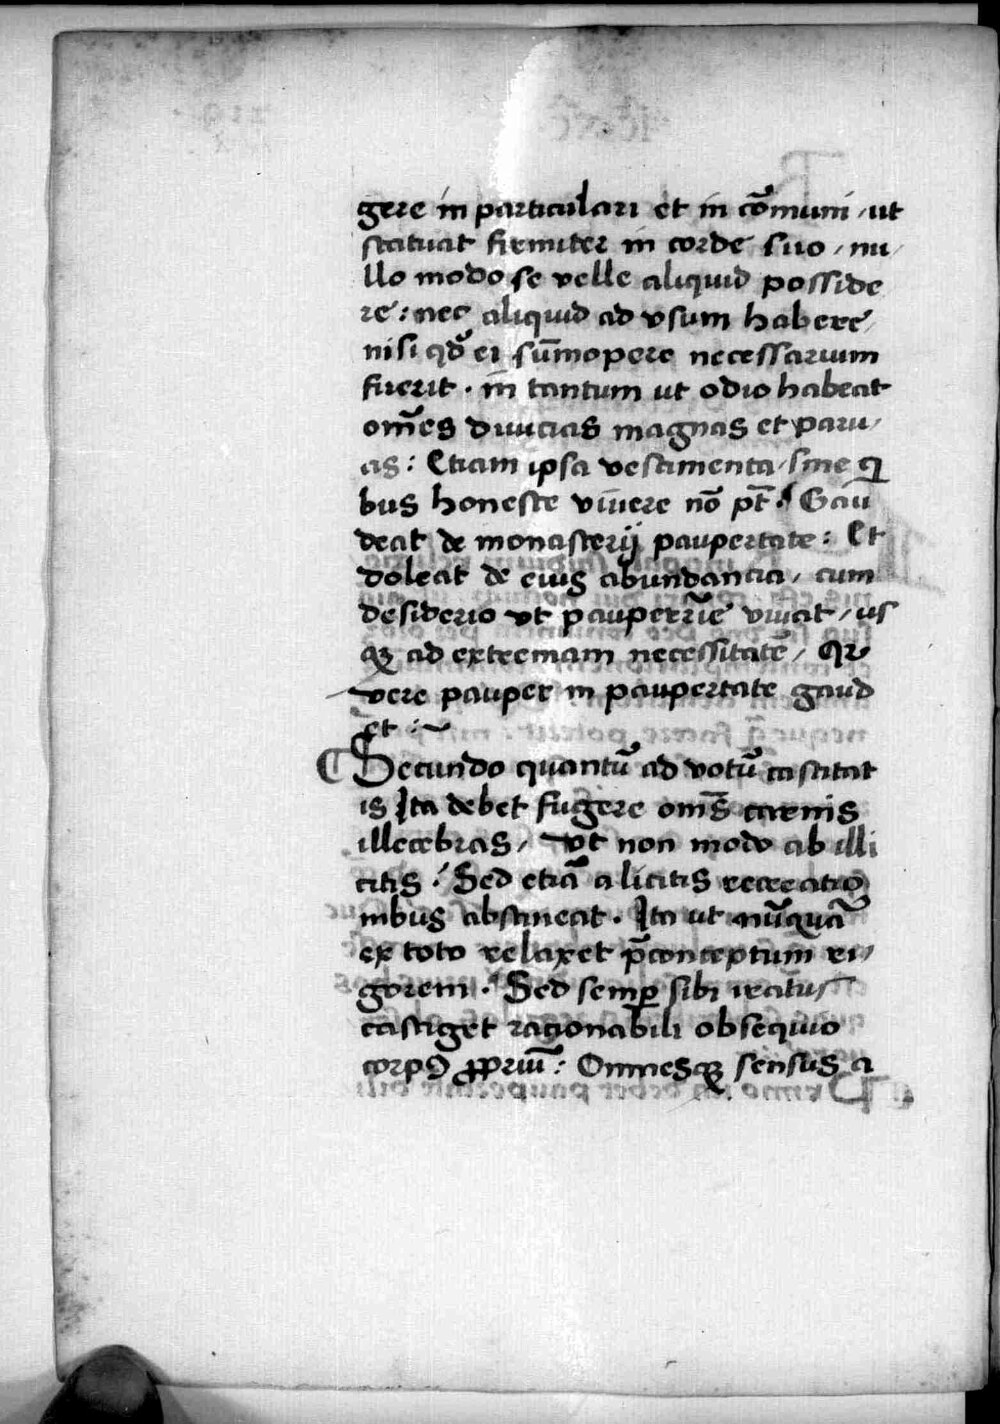 gere in particulari et in cōmuni / ut
statuat firmiter in corde suo / nu/
llo modo se velle aliquid posside
re: nec aliquid ad vsum habere/
nisi qđ ei sūmopere necessarium
fuerit . in tantum ut odio habeat
om̄es diuicias magnas et paru/
as: Etiam ipsa vestimenta / sine q̄
bus honeste viuere nō pt̄. Gau
deat de monasterij paupertate: Et
doleat de eius abundancia / cum
desiderio vt pauperrīe viuat / us
qꝫ ad extremam necessitatē / Qr
vere pauper in paupertate gaud
et :~
¶ Secundo quantū ad votū castitat
is Ita debet fugere om̄s carnis
illecebras / vt non modo ab illi
citis . Sed etiā a licitis recreatio
nibus abstineat . Ita ut nūquā
ex toto relaxet p̄conceptum ri/
gorem . Sed semꝑ sibi iratus
castiget racionabili obsequio
corpꝰ ꝓpriū : Omnesqꝫ sensus a